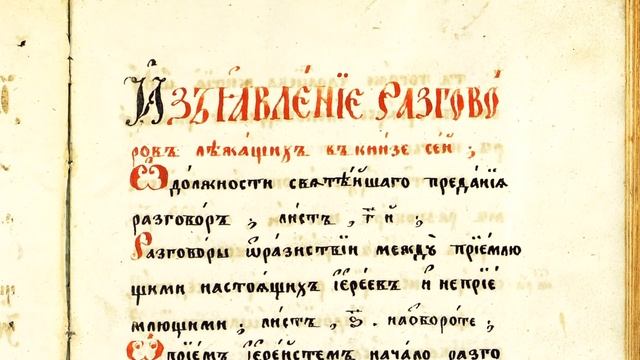 Изъꙗвле́нїе Разгово́
ровъ лѣжа́щихъ въ кни́зе се́й ;
Ѿ до́лжности свѧтѣ́йшаго преда́нїѧ
разгово́ръ ; ли́стъ , г҃ й ;
Разгово́ры ѡ҆ра́зиствїи между̀ прїе́млю
щими настоѧ́щихъ їере́евъ и непрїе́
млющими ; ли́стъ , ѕ҃ . наѡборо́те ;
Ѡ прїе́мѣ їере́йстемъ нача́ло разго